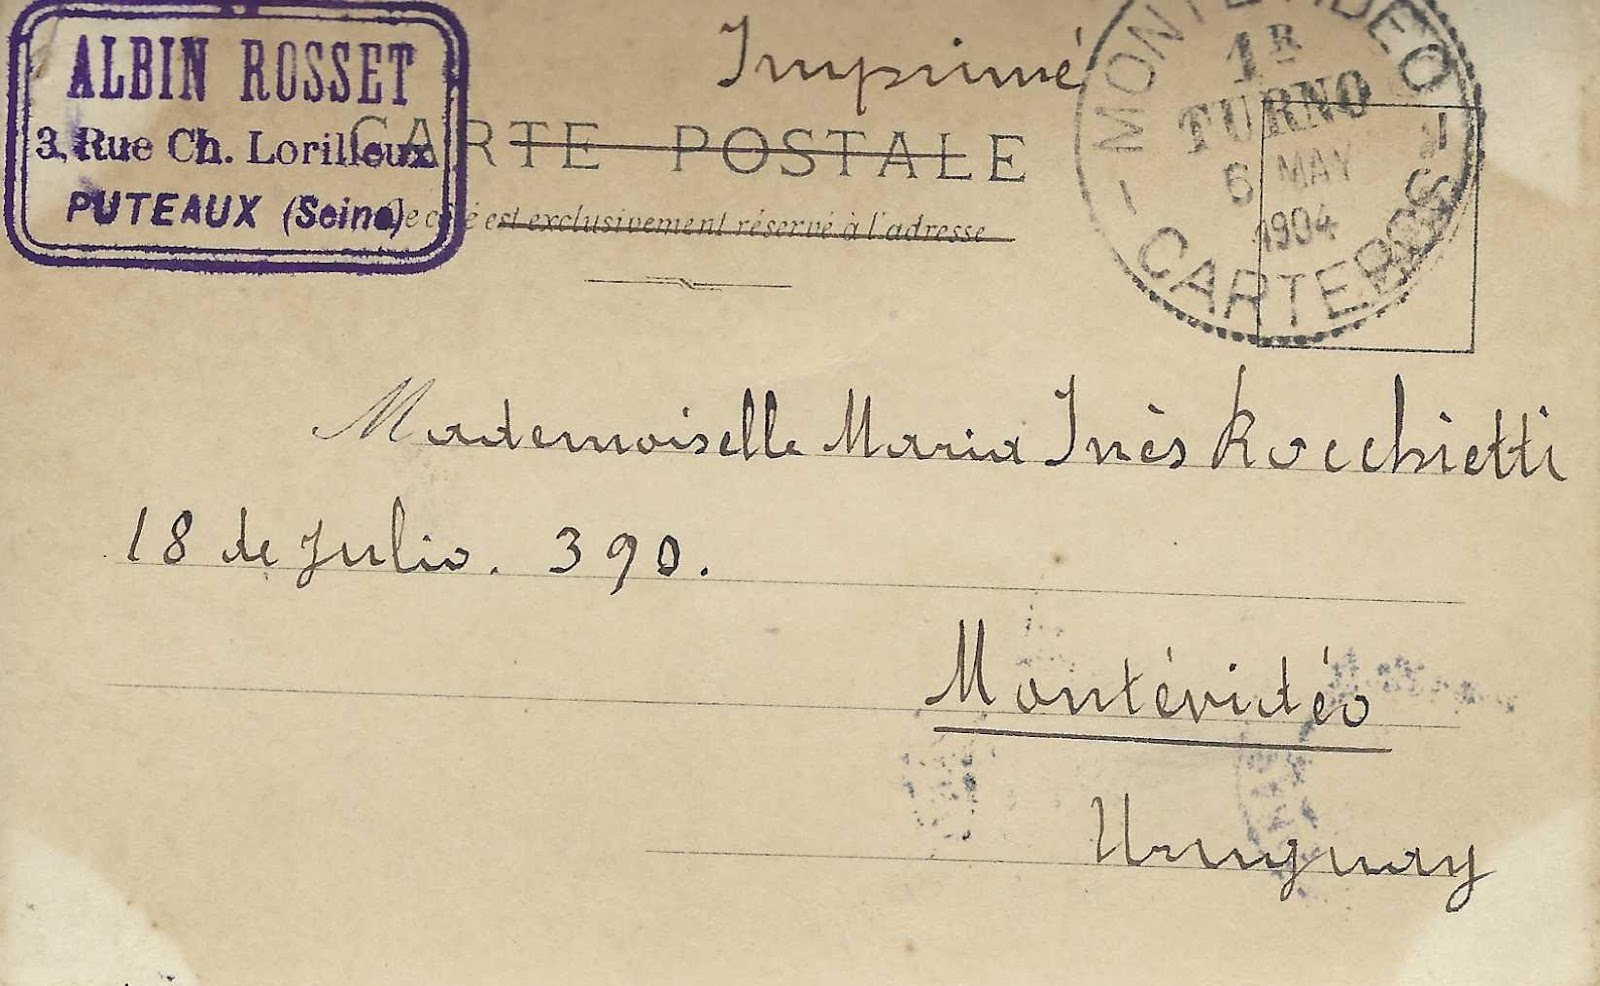 ALBIN ROSSET
3, Rue Ch. Lorilleux
PUTEAUX (Seine)
Imprimé
CARTE POSTALE
Ce côté est exclusivement réservé à l'adresse
MONTEVIDEO
1R
TURNO
6 MAY
1904
CARTEROS
Mademoiselle Maria Inès Rocchietti
18 de Julio. 390.
Montévidéo
Uruguay